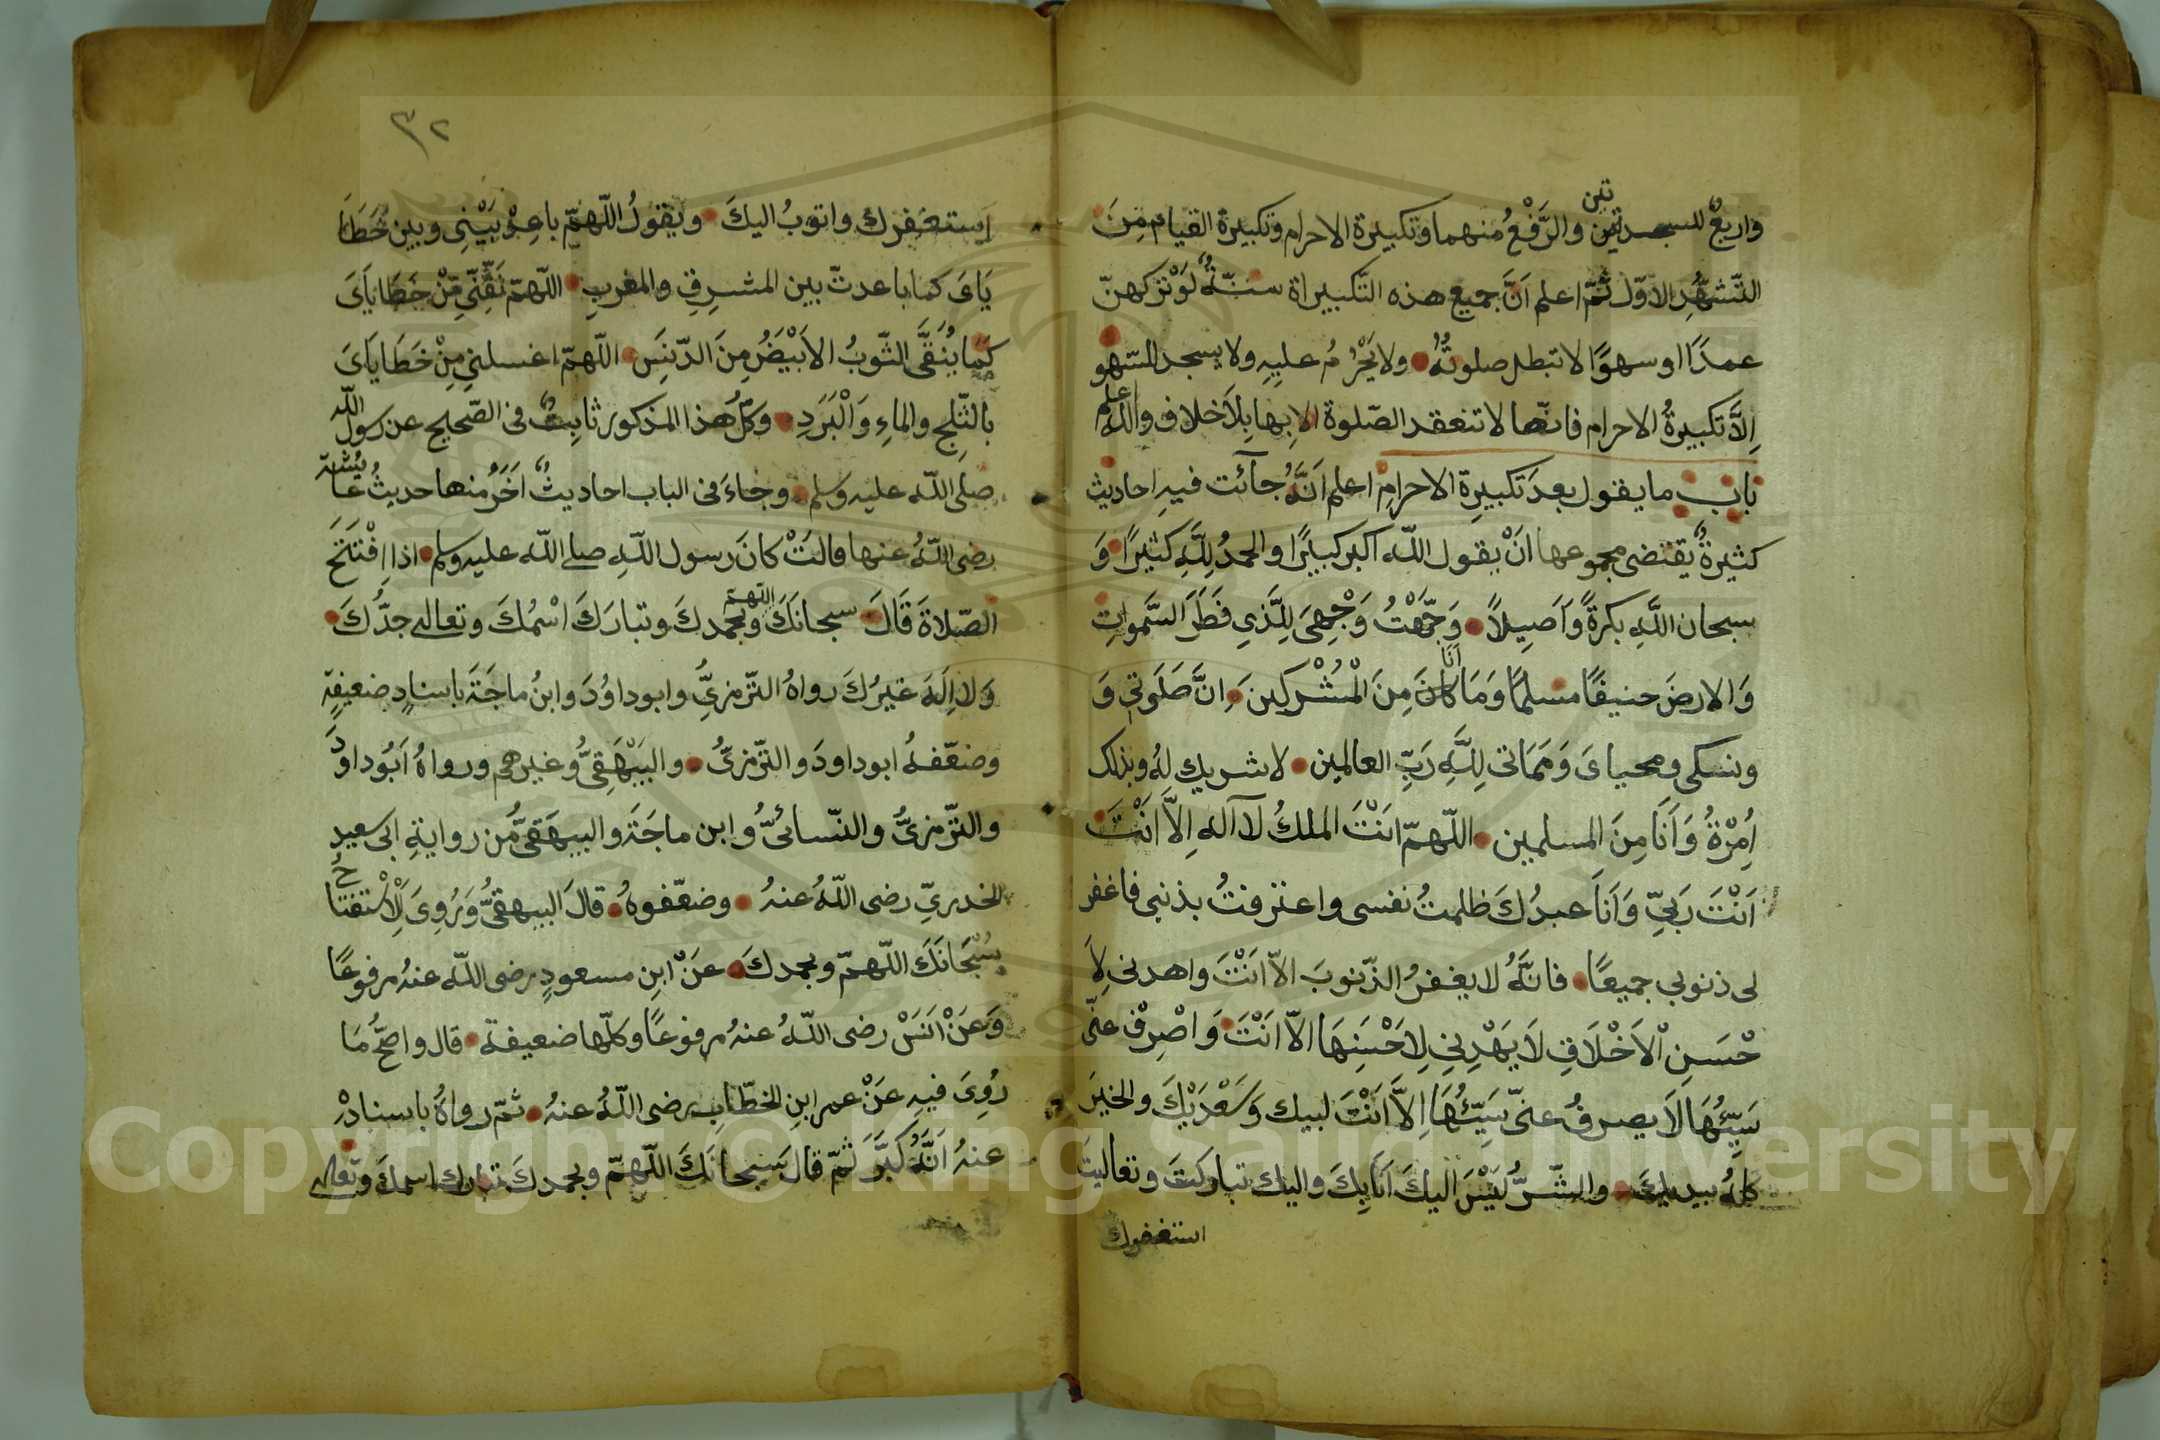 واربعٌ للسجدتين والرَّفْعُ منهما وتكبيرة الاحرام وتكبيرة القيام مِنَ
التّشهُّدِ الاوّل ثمّ اعلم اَنَّ جميع هذه التّكبيراة سنّةٌ لَوْ تركهنّ
عمدًا او سهوًا لا تبطل صلوتُهُ ولا يَحْرُمُ عليهِ ولا يسجد للسّهو
اِلاَّ تكبيرةُ الاحرام فانّها لا تنعقد الصّلوة الا بها بِلاَ خلاف والله اعلم
باب ما يقول بعدَ تكبيرةِ الاحرامِ اعلم اَنَّهُ جآئت فيهِ احاديث
كثيرةٌ يقتضى مجموعها انْ يقول اللّه اكبر كبيرًا والحمدُ لِلَّهِ كثيرًا وَ
سبحان اللَّهِ بكرةً وَاَصِيلاً وَجَّهْتُ وَجْهِىَ لِلَّذِى فَطَرَ السَّموٰاتِ
وَالارضَ حنيفًا مسلمًا وَمَا كانَ اَنَا مِنَ الْمُشْركينَ اِنَّ صَلَوتِى وَ
ونسكى ومحياىَ وَمَمَاتى لِلَّهِ رَبِّ العالمين لا شريك لهُ وبذلك
اُمِرْةُ وَاَنَا مِنَ المسلمين اللّهمّ انَتْ الملكُ لا آله اِلاَّ انَتْ
اَنْتَ رَبِّى وَاَنَا عبدُكَ ظلمتُ نفسى واعترفتُ بذنبى فاغفر
لى ذنوبى جميعًا فانَّهُ لا يغفرُ الذّنوبَ الاّ انَتْ واهدنى لِاَ
حْسَنِ الْاَخْلَاقِ لَا يَهْدِنِى لِاَحْسَنِهَا الاّ انَتْ وَاصْرِفْ عنّى
سَيِّئُهَا لَا يصرفُ عنّى سَيِّئُهَا اِلاَّ انَتْ لبيك وَسَعْدَيْكَ والخيَر
كلّهُ بيديكَ والشّرُّ لَيْسَ اليكَ اَنَا بِكَ واليك تباركتَ وتعاليتَ
استغفرك
٣٢
اَستغفرك واتوبُ اليكَ ويقولُ اللّهمّ باعِدْ بَيْنِى وبين خَطَا
يَاىَ كما باعدتَ بين المشرِقِ والمغربِ اللّهمّ نَقِّنِى مِّنْ خَطَايَاىَ
كَمَا يُنَقَّى الثّوبُ الاَبْيَضُ مِنَ الدّنَسِ اللّهمّ اغسلنى مِنْ خَطَايَاىَ
بالثّلجِ والماءِ وَالْبَرَدِ وكلّ هذا المذكور ثابِتٌ فى الصّحيح عن رسول اللّه
صلى اللّه عليه وسلم وجاءَ فى الباب احاديثٌ اَخَرُ منها حديثُ عايشة
رضى اللّهُ عنها قالتْ كانَ رسول اللّهِ صلى اللّه عليه وسلم اذا اِفْتَتَحَ
الصّلاةَ قَالَ سبحانَكَ اللّهمّ وبحمدكَ وتبارَكَ اسْمُكَ وتعالى جدُّكَ
وَلا اِلَهَ غيرُكَ رواهُ التّرمزىُّ وابو داوُدَ وابنُ ماجَةَ باسنادٍ ضعيفةٍ
وضعّفهُ ابو داودَ والتّرمزىُّ والبَيْهَقِىُّ وغيرهم ورواهُ اَبُو داوُدَ
والتّرمزىُّ والنّسائىُّ وابن ماجَةَ والبيهَقىُّ من روايةِ ابى سعيدٍ
الخدرىِّ رضى اللّهُ عنهُ وضعّفوهُ قالَ البيهقىُّ وَرُوِىَ الْاِسْتفتاحُ
بسُبْحَانَكَ اللّهمّ وبحمدكَ عَنْ ابنِ مسعودٍ رضى اللّه عنهُ مرفوعًا
وَعَنْ انَسْ رضى اللّهُ عنهُ مرفوعًا وكلّها ضعيفة قال واصحُّ مَا
رُوِىَ فيهِ عَنْ عمر ابنِ الخطّابِ رضى اللّهُ عنهُ ثمّ رواهُ باسنادهْ
عنهُ اَنَّهُ كَبَّرَ ثمّ قالَ سبحانَكَ اللّهمّ وبحمدكَ تبارك اسمكَ وتعالى
Copyright © King Saud University